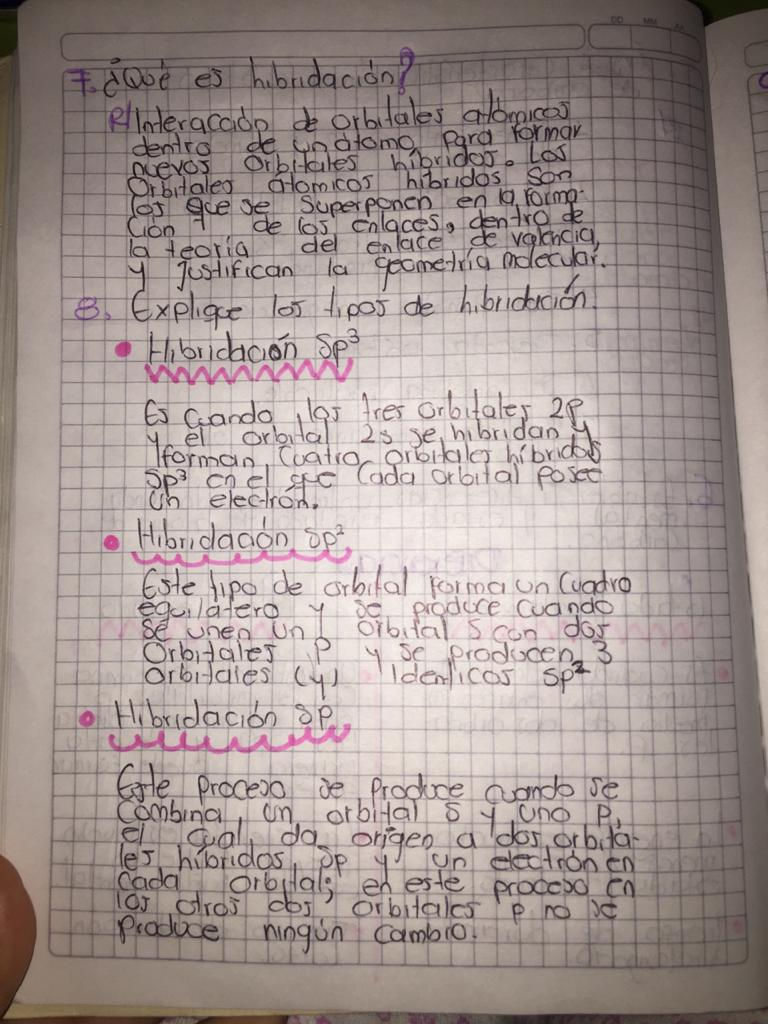 DD MM AA
7. ¿Qué es hibridación?
R/Interacción de orbitales atómicos
dentro de un átomo para formar
nuevos orbitales híbridos. Los
Orbitales atomicos híbridos son
los que se superponen en la forma-
ción de los enlaces, dentro de
la teoría del enlace de valencia,
y justifican la geometría molecular.
8. Explique los tipos de hibridación.
• Hibridación Sp³
Es cuando los tres orbitales 2p
y el orbital 2s se hibridan y
forman cuatro orbitales híbridos
Sp³ en el que cada orbital posee
un electrón.
• Hibridación Sp²
Este tipo de orbital forma un Cuadro
equilátero y se produce cuando
se unen un orbital s con dos
orbitales p y se producen 3
orbitales (y) identicos sp²
• Hibridación SP
Este proceso se produce cuando se
combina, un orbital s y uno p,
el cual da origen a dos orbita-
les híbridos sp y un electrón en
cada orbital; en este proceso en
los otros dos orbitales p no se
produce ningún cambio.